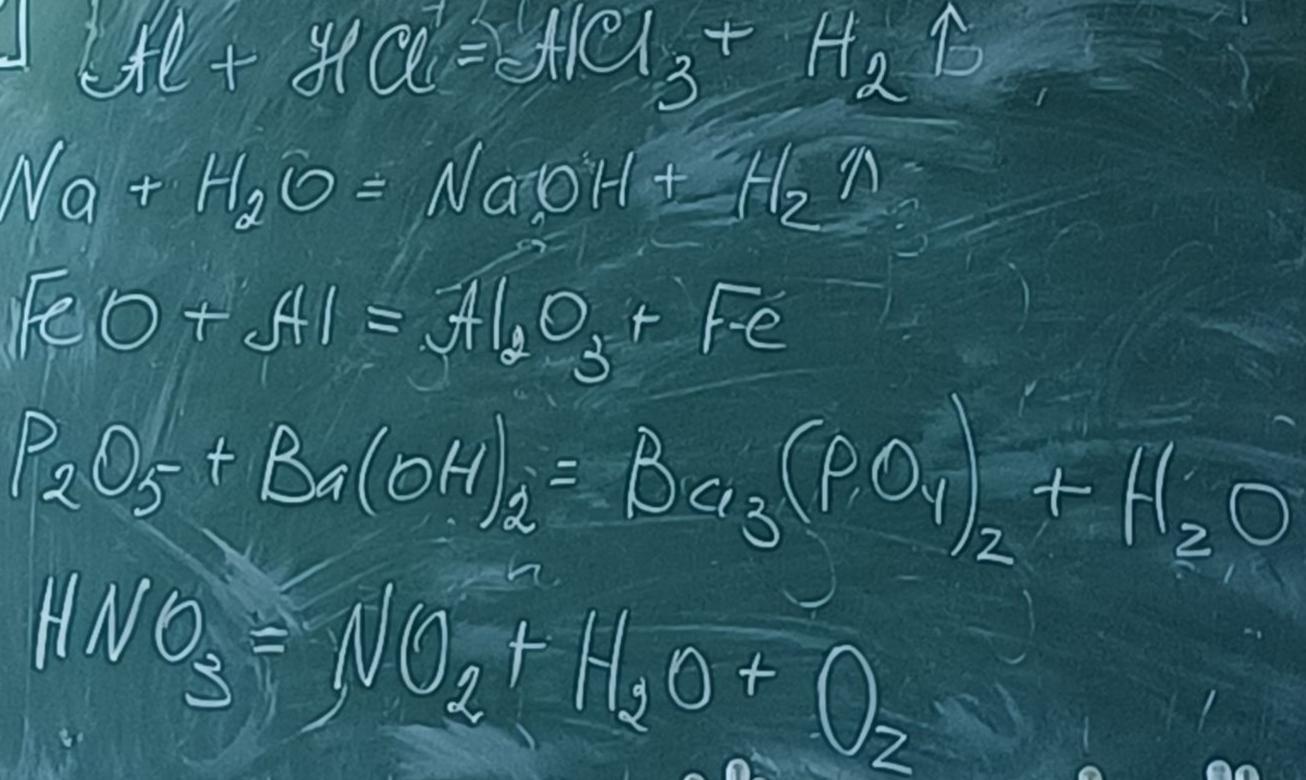 Al + HCl = AlCl₃ + H₂ ↑
Na + H₂O = NaOH + H₂ ↑
FeO + Al = Al₂O₃ + Fe
P₂O₅ + Ba(OH)₂ = Ba₃(PO₄)₂ + H₂O
HNO₃ = NO₂ + H₂O + O₂